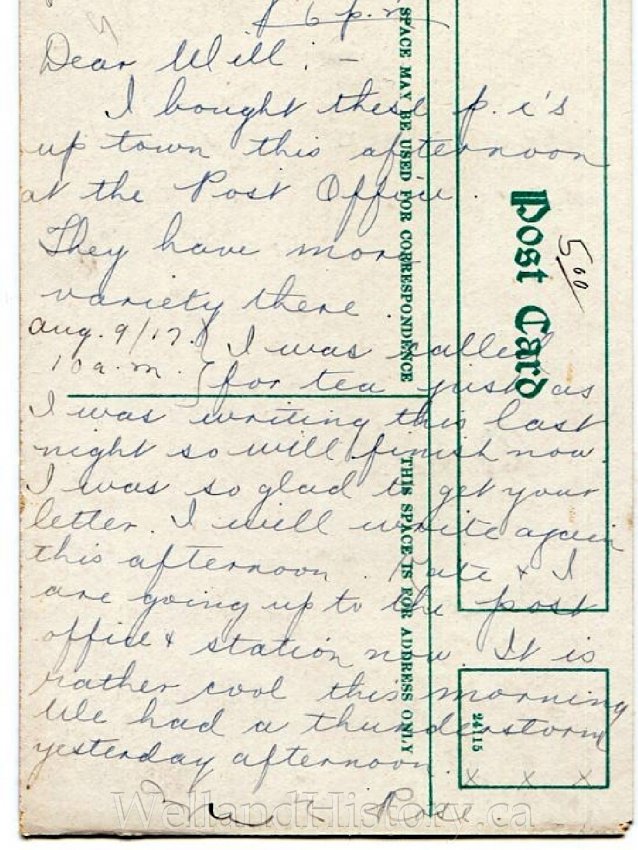 6 p.m.
Dear Will: –
I bought these p.c's
up town this afternoon
at the Post Office.
They have more
variety there.
Aug. 9/17. } I was called
10 a.m. } for tea just as
I was writing this last
night so will finish now.
I was so glad to get your
letter. I will write again
this afternoon. Kate & I
are going up to the post
office & station now. It is
rather cool this morning
We had a thunderstorm
yesterday afternoon.
x x x
Rose.
SPACE MAY BE USED FOR CORRESPONDENCE
THIS SPACE IS FOR ADDRESS ONLY
Post Card
5.00
24115
WellandHistory.ca